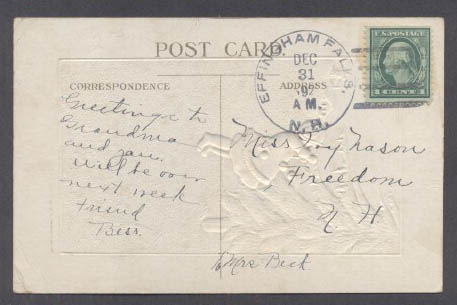 POST CARD
CORRESPONDENCE
ADDRESS
EFFINGHAM FALLS.
DEC
31
A M.
N.H.
U.S. POSTAGE
1 CENT 1
Greetings to
Grandma
and you.
Will be over
next week
Friend
Bess.
Miss Ivy Nason
Freedom
N H
Mrs Beck